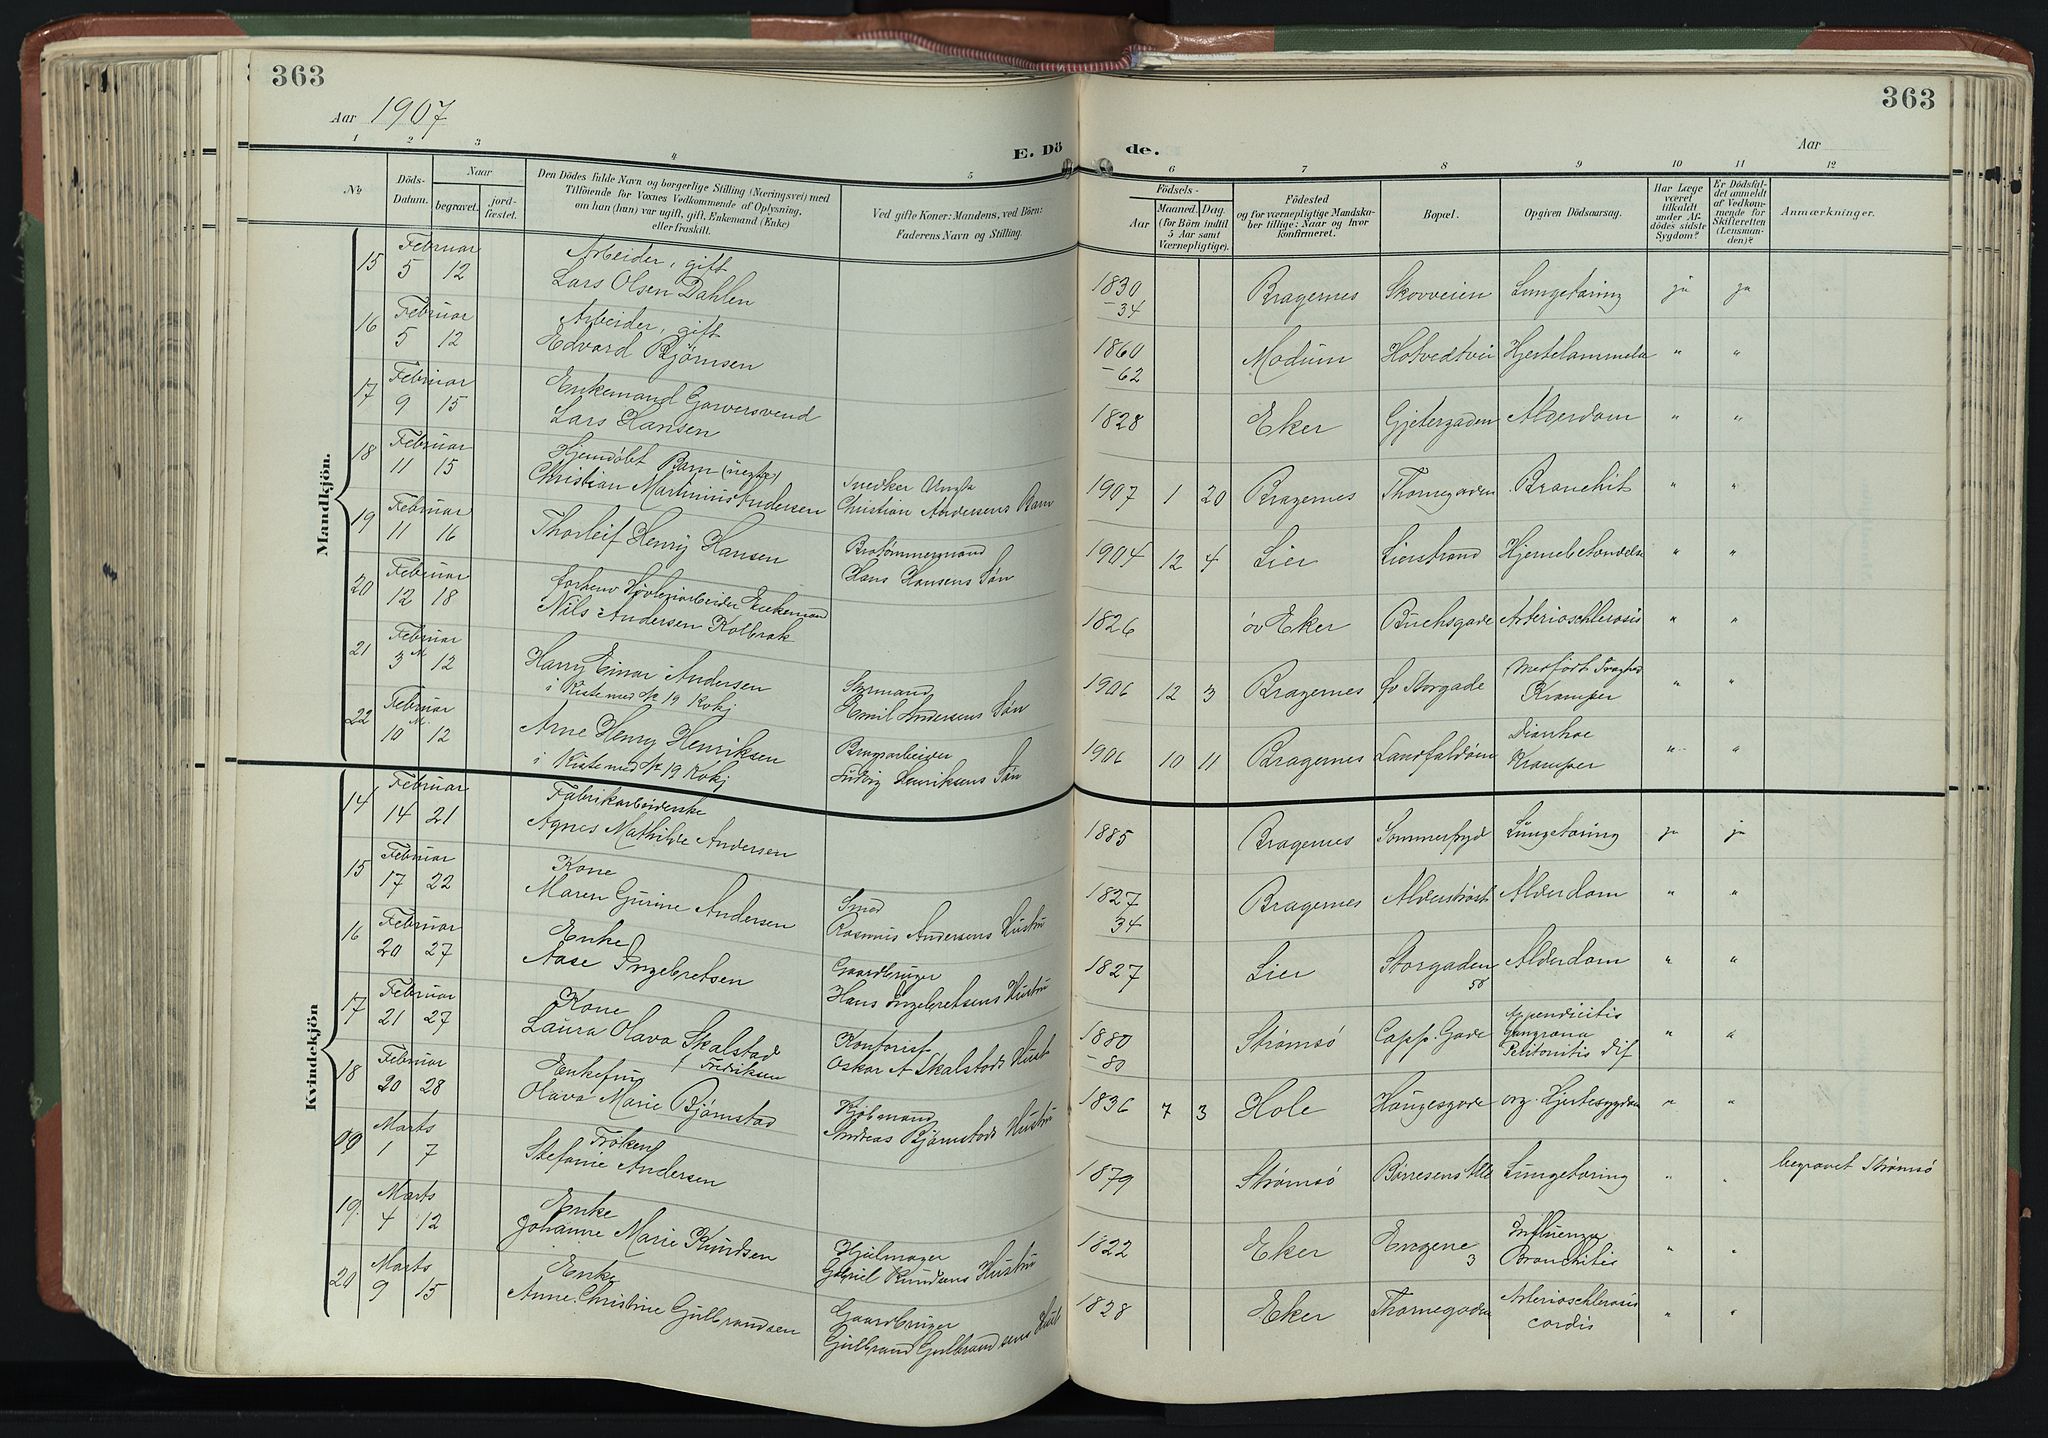 363
363
Aar 1907
Aar
E. Dö
de.
1 2 3 4 5 6 7 8 9 10 11 12
No
Döds-Datum.
Naar
begravet.
jord-fæstet.
Den Dödes fulde Navn og borgerlige Stilling (Næringsvei) med
Tilföiende for Voxnes Vedkommende af Oplysning,
om han (hun) var ugift, gift, Enkemand (Enke)
eller fraskilt.
Ved gifte Koner: Mandens, ved Börn:
Faderens Navn og Stilling.
Födsels-
Aar
Maaned.
Dag.
(for Börn indtil
5 Aar samt
Værnepligtige).
Födested
og for værnepligtige Mandska-
ber tillige: Naar og hvor
konfirmeret.
Bopæl.
Opgiven Dödsaarsag.
Har Læge
været
tilkaldt
under Af-
dödes sidste
Sygdom?
Er Dödsfal-
det anmeldt
af Vedkom-
mende for
Skifteretten
(Lensman-
den)?
Anmærkninger.
Mandkjön.
15 Februar 5 12 Arbeider, gift
Lars Olsen Dahlen 1830 Bragernes Skovveien Lungetæring ja ja
-34
16 Februar 5 12 Arbeider, gift
Edvard Bjørnsen 1860 Modum Hotvedtvei Hjertelammelse " "
-62
17 Februar 9 15 Enkemand Garversvend
Lars Hansen 1828 Eker Gjetergaden Alderdom " "
18 Februar 11 15 Hjemdøbt Barn (uegte)
Christian Martinius Andersen Snedker Ungk
Christian Andersens Barn 1907 1 20 Bragernes Thornegaden Bronchit " "
19 Februar 11 16 Thorleif Henry Hansen Brotømmermand
Hans Hansens Søn 1904 12 4 Lier Lierstrand Hjernebetændelse " "
20 Februar 12 18 forhenv Høvleriarbeider Enkemand
Nils Andersen Kolbrek 1826 øv Eker Buchsgade Arterioschlerosis " "
21 Februar 3 M 12 Harry Einar Andersen
i Kiste med No 19 Kvkj Sjømand
Emil Andersens Søn 1906 12 3 Bragernes Øv Storgade Medført Svaghed
Kramper " "
22 Februar 10 M. 12 Arne Henry Henriksen
i Kiste med No 19 Kvkj Brugsarbeider
Ludvig Henriksens Søn 1906 10 11 Bragernes Landfaldøen Diarrhoe
Kramper " "
Kvindekjön
14 Februar 14 21 Fabrikarbeiderske
Agnes Mathilde Andersen 1885 Bragernes Sommerfryd Lungetæring ja ja
15 Februar 17 22 Kone
Maren Gurine Andersen Smed
Rasmus Andersens Hustru 1827 Bragernes Alderstrøst Alderdom " "
34
16 Februar 20 27 Enke
Aase Ingebretsen Gaardbruger
Hans Ingebretsens Hustru 1827 Lier Storgaden Alderdom " "
58
17 Februar 21 27 Kone
Laura Olava Skalstad
f Fredriksen Kontorist
Oskar A Skalstads Hust 1880 Strømsø Capp. Gade Appendicitis
Gangræna
Peritonitis dif " "
-80
18 Februar 20 28 Enkefru
Olava Marie Bjørnstad Kjøbmand
Andreas Bjørnstads Hustru 1836 7 3 Hole Haugesgade org. Hjertesygdom " "
Marts 1 7 Frøken
Stefanie Andersen 1879 Strømsø Børresens Alle Lungetæring " " begravet Strømsø
19. Marts 4 12 Enke
Johanne Marie Knudsen Hjulmager
Gabriel Knudsens Hustru 1822 Eker Engene Influenza
3 Bronchitis " "
20 Marts 9 15 Enke
Anne Christine Gulbrandsen Gaardbruger
Gulbrand Gulbrandsens Hust 1828 Eker Thornegaden Arterioschlerosis
cordis " "